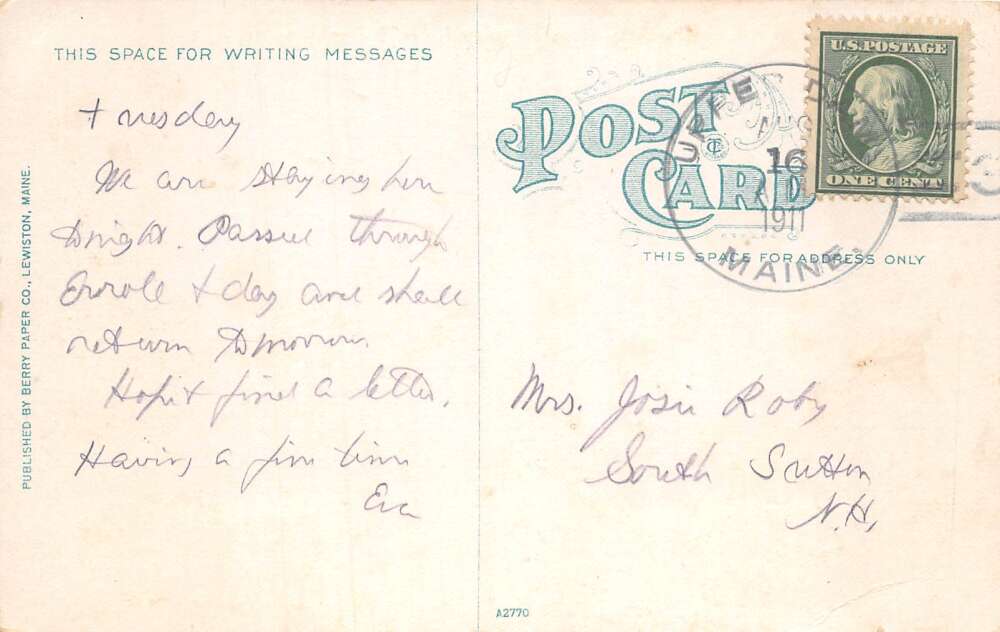 THIS SPACE FOR WRITING MESSAGES
Tuesday
We are staying here
tonight. Passed through
Errole to day and shall
return tomorrow.
Hope to find a letter.
Having a fine time
Eva
PUBLISHED BY BERRY PAPER CO., LEWISTON, MAINE.
POST
CARD
THIS SPACE FOR ADDRESS ONLY
U.S. POSTAGE
ONE CENT
UPPER
AUG
16
1911
MAINE.
Mrs. Josie Roby
South Sutton
N.H.
A2770